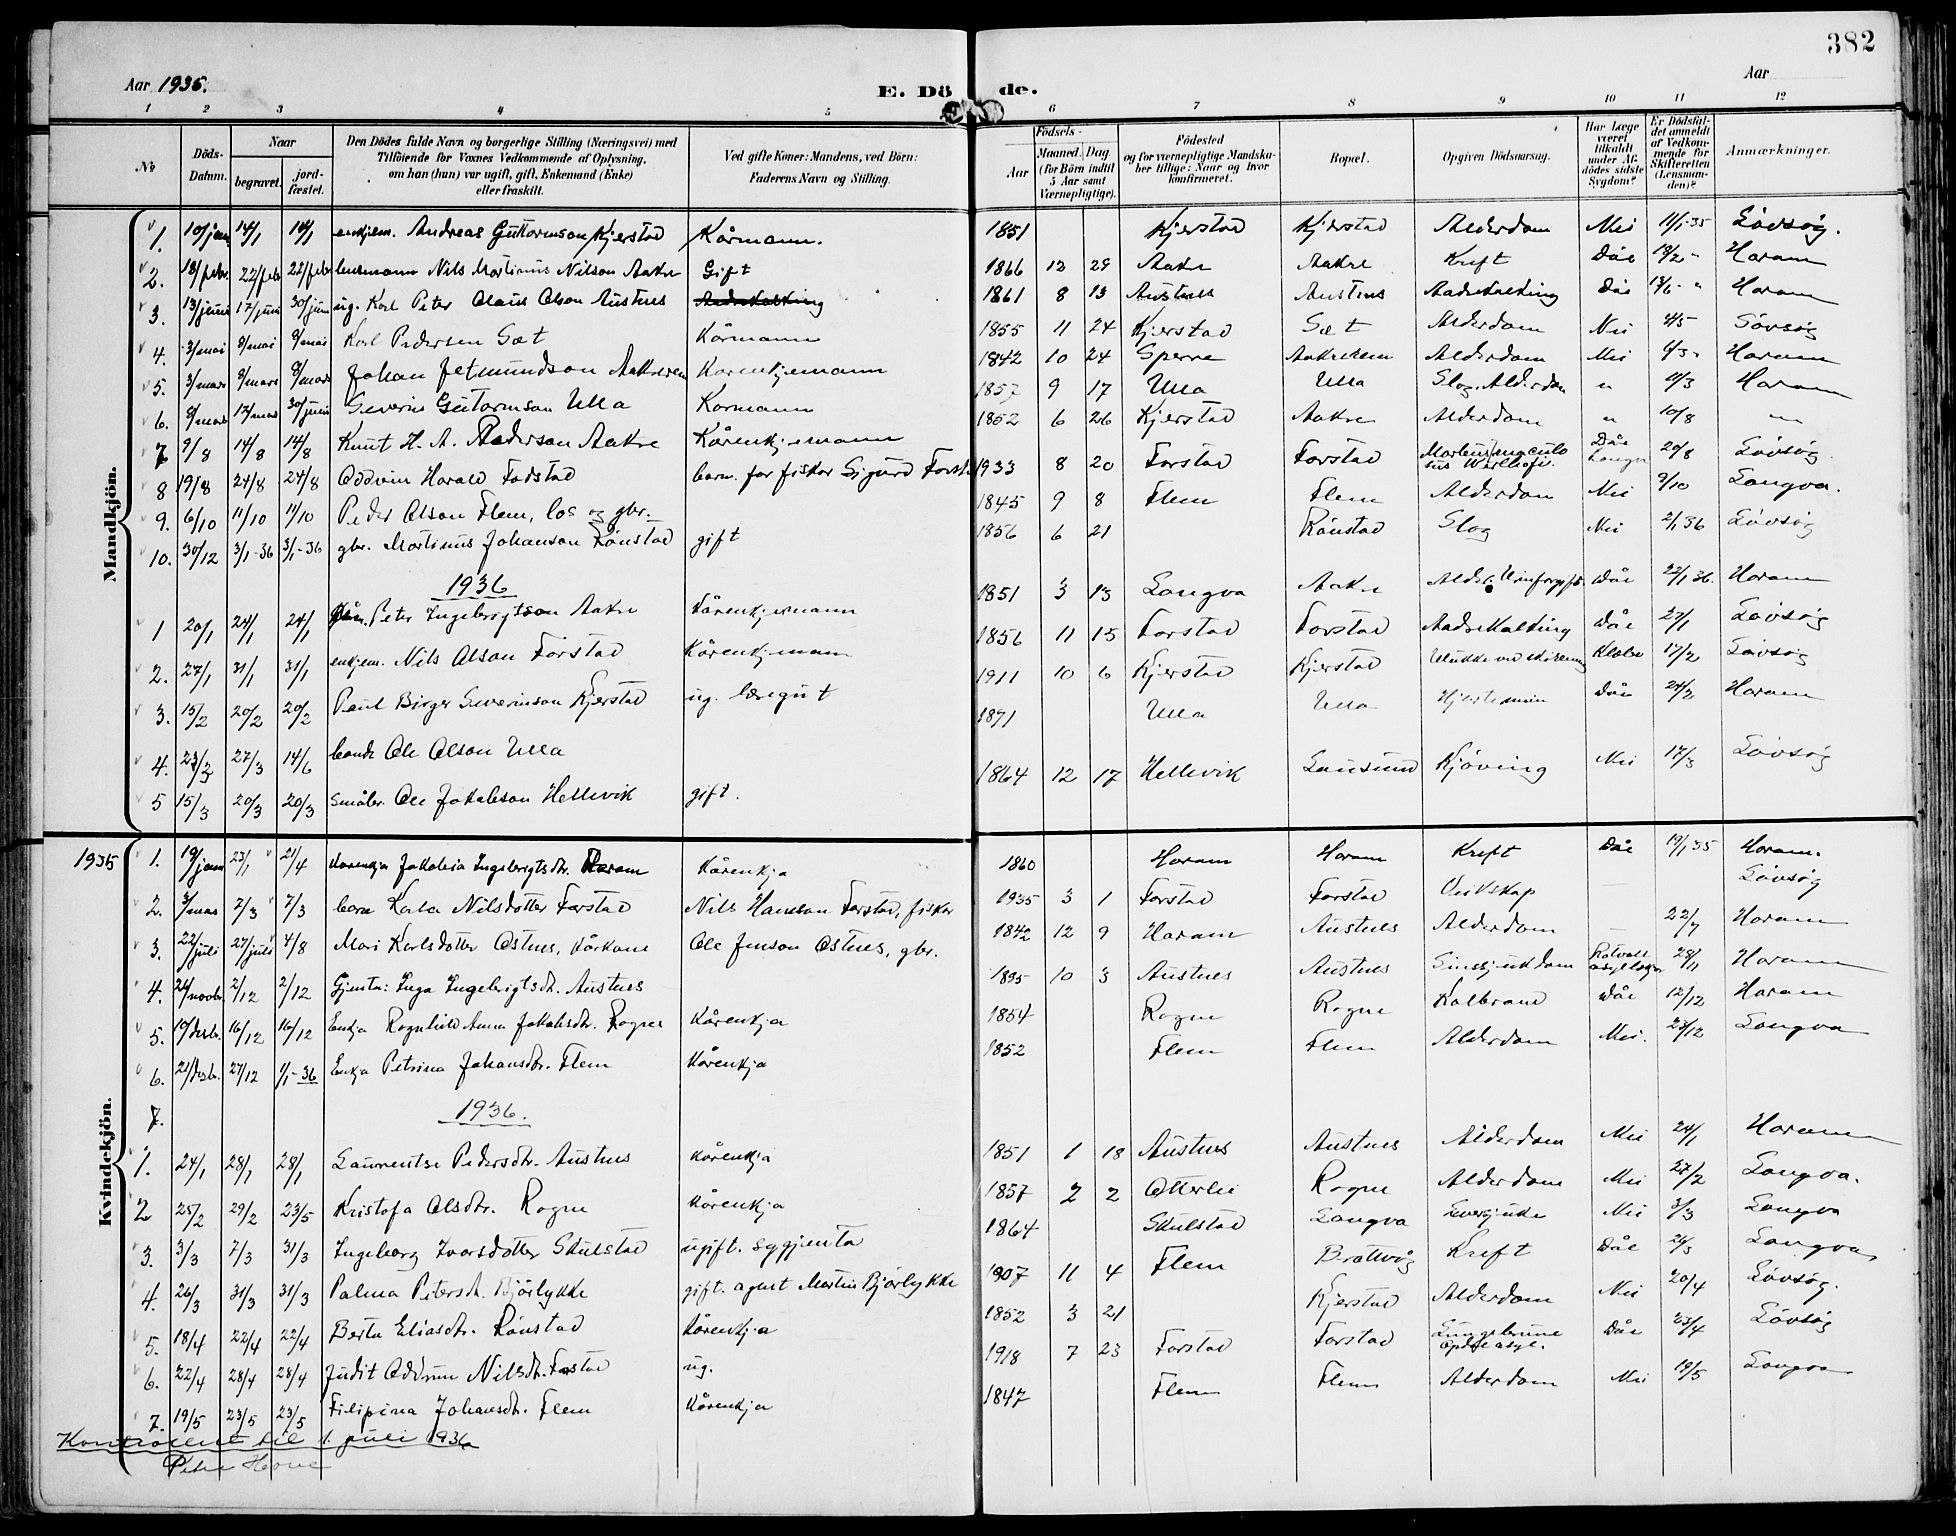 382
Aar 1935.
E. Dö de.
Aar
1 2 3 4 5 6 7 8 9 10 11 12
No
Döds-Datum.
Naar
begravet.
jord-fæstet.
Den Dödes fulde Navn og borgerlige Stilling (Næringsvei) med
Tilföiende for Voxnes Vedkommende af Oplysning,
om han (hun) var ugift, gift, Enkemand (Enke)
eller fraskilt.
Ved gifte Koner: Mandens, ved Börn:
Faderens Navn og Stilling.
Födsels-
Aar
Maaned. Dag
(for Börn indtil
5 Aar samt
Værnepligtige).
Födested
og for værnepligtige Mandska-
ber tillige: Naar og hvor
konfirmeret.
Bopæl.
Opgiven Dödsaarsag.
Har Læge
været
tilkaldt
under Af-
dödes sidste
Sygdom?
Er Dödsfal-
det anmeldt
af Vedkom-
mende for
Skifteretten
(Lensman-
den)?
Anmærkninger.
Mandkjön.
1. 10/jan 14/1 14/1 enkjem. Andreas Guttormson Kjerstad Kårmann. 1851 Kjerstad Kjerstad Alderdom Nei 11/1-35 Lövsög.
2. 18/febr. 22/febr 22/febr lensmann Nils Martinus Nilson Aakre Gift 1866 12 29 Aakre Aakre Kreft Haram
3. 13/juni 17/juni 30/juni ug. Karl Peter Olaus Olson Austnes 1861 8 13 Austnes Austnes Aadrekalking Haram
4. 3/mai 8/mai 8/mai Karl Pedersen Sæt Kårmann 1855 11 24 Kjerstad Sæt Alderdom Nei 4/5 Lövsög
5. 3/mars 8/mars 8/mars Johan Jetmundson Aakrerem Karenkjemann 1842 10 24 Sperre Aakrerem Alderdom Nei Haram
6. 8/mars 12/mars 30/juni Severin Guttormson Ulla Kormann 1857 9 17 Ulla Ulla Slag. Alderdom " 11/3 Haram
7 9/8 14/8 14/8 Knut H. A. Anderson Aakre Kårenkjemann 1852 6 26 Kjerstad Aakre Alderdom " 10/8 "
8 19/8 24/8 24/8 Oddvin Harald Fostad barn. far fisker Sigurd Forst. 1933 8 20 Forstad Forstad Morbus maculosus Werlhofi. 20/8 Lövsög
9. 6/10 11/10 11/10 Peder Olson Flem, los og gbr. 1845 9 8 Flem Flem Alderdom Nei 9/10 Longva.
10. 30/12 3/1-36 3/1-36 gbr. Martinus Johanson Rönstad gift 1856 6 21 Rönstad Slag Nei 2/1 36 Lövsög
1936
1 20/1 24/1 24/1 Peter Ingebrigtson Aakre Kårenkjemann 1851 3 13 Longva Aakre 22/1 36. Haram
2. 27/1 31/1 31/1 enkjem. Nils Olson Forstad Kårenkjemann 1856 11 15 Forstad Forstad Aadrekalking 27/1 Lövsög
3. 15/2 20/2 20/2 Paul Birger Severinson Kjerstad ug. læregut 1911 10 6 Kjerstad Kjerstad 17/2 Lövsög
4. 23/3 27/3 14/6 Ole Olson Ulla 1871 Ulla Ulla 24/3 Haram
5 15/3 20/3 20/3 småbr. Ole Jakobson Hellevik gift. 1864 12 17 Hellevik Kjöving Nei 17/3 Lövsög
Kvindekjön.
1935 1. 19/jan 23/1 21/4 Karenkja Jakobia Ingebrigtsdtr. Haram Kårenkja 1860 Haram Haram Kreft 19/1 35 Haram.
2. 3/mars 7/3 7/3 barn Karla Nilsdotter Forstad Nils Hansson Forstad, fisker 1935 3 1 Forstad Forstad Veikskap Lövsög
3. 22/juli 27/juli 4/8 Mari Karlsdotter Ostnes, kårkone Ole Jenson Ostnes, gbr. 1842 12 9 Haram Austnes Alderdom 22/7 Haram
4. 24/novbr. 2/12 2/12 Gjenta: Inga Ingebrigtsdt. Austnes 1895 10 3 Austnes Austnes Sinssjukdom 28/11 Haram
5. 10/desb. 16/12 16/12 Enkja Ragnhild Anna Jakobsdtr. Rogne Kårenkja 1854 Rogne Rogne Kolbrand 12/12 Haram
6. 21/desb. 27/12 1/1-36 Enkja Petrina Johansdtr. Flem Kårenkja 1852 Flem Flem Alderdom Nei. 23/12 Longva
7. 1936.
1. 24/1 28/1 28/1 Laurentse Pedersdtr. Austnes Kårenkja 1851 1 18 Austnes Austnes Alderdom Nei 24/1 Haram
2 25/2 29/2 23/5 Kristofa Olsdtr. Rogne Kårenkja 1857 2 2 Otterlei Rogne Alderdom Nei 27/2 Longva.
3. 3/3 7/3 31/3 Ingeborg Ivarsdotter Skulstad ugift. sygjenta 1864 Skulstad Longva Nei 3/3 Longva
4. 26/3 31/3 31/3 Palma Petersdt. Björlykke gift. agent Martin Björlykke 1907 11 4 Flem Brattvåg Kreft 26/3 Longva
5. 18/4 22/4 22/4 Berta Eliasdtr. Rönstad Kårenkja 1852 3 21 Kjerstad Alderdom Nei 20/4 Lövsög.
6. 22/4 28/4 28/4 Judit Oddrun Nilsdtr. Forstad ug. 1918 7 23 Forstad Forstad 23/4 Lövsög
7. 19/5 23/5 23/5 Filipina Johansdtr. Flem Kårenkja 1847 Flem Flem Alderdom Nei 19/5 Longva
Kontrollert til 1. juli 1936